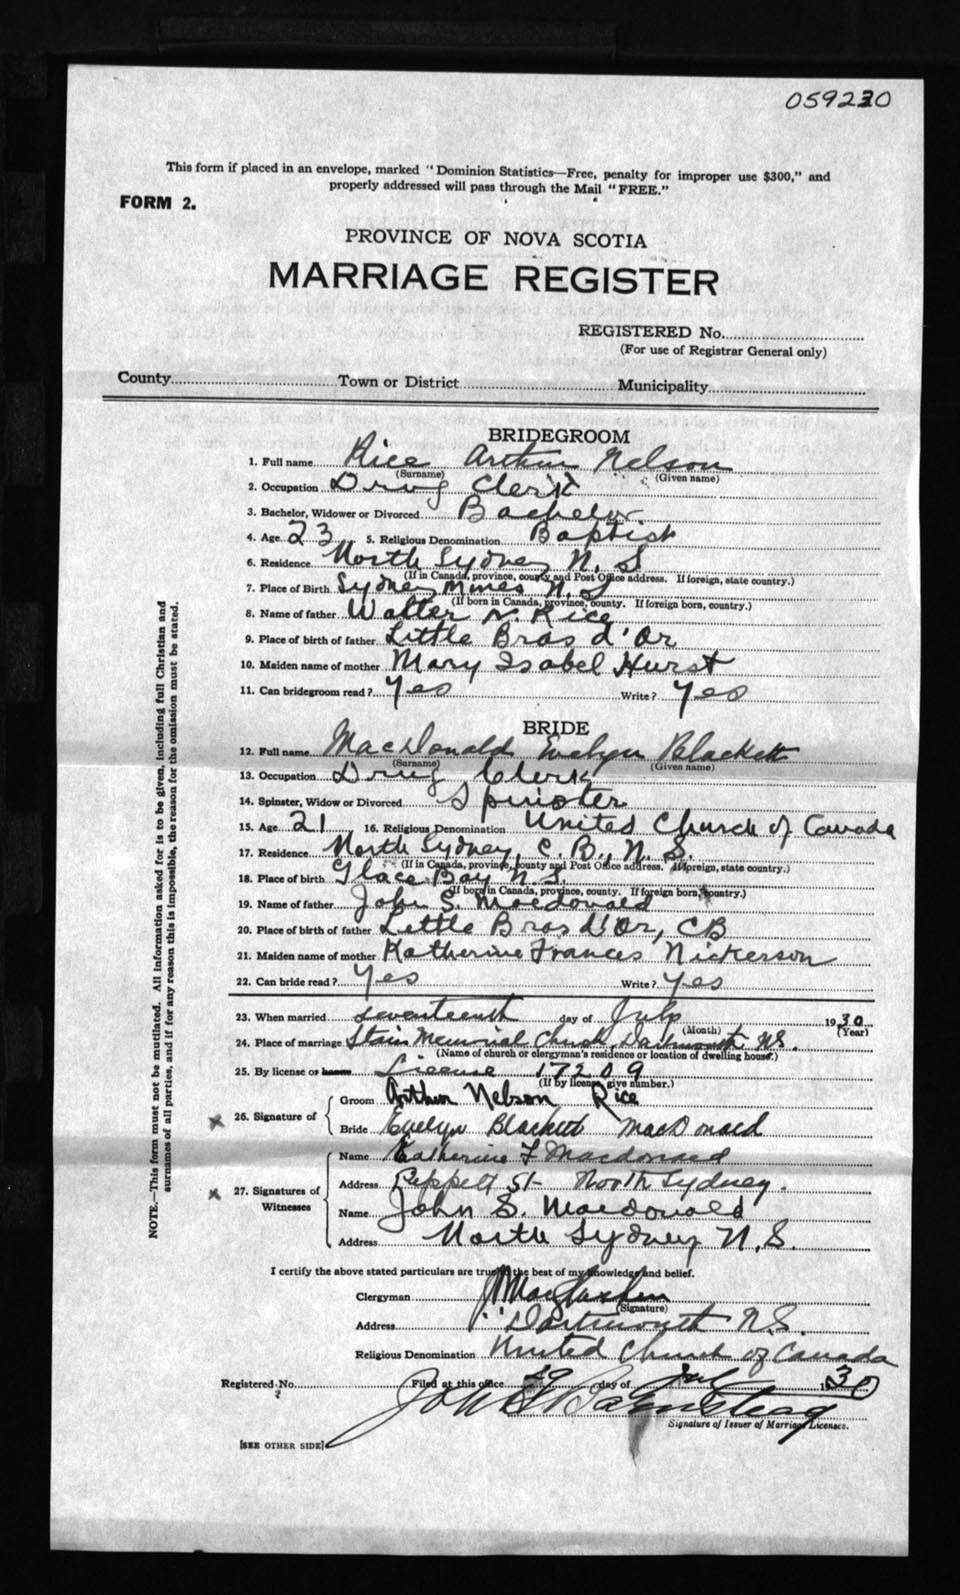 059230
This form if placed in an envelope, marked "Dominion Statistics—Free, penalty for improper use $300," and
properly addressed will pass through the Mail "FREE."
FORM 2.
PROVINCE OF NOVA SCOTIA
MARRIAGE REGISTER
REGISTERED No.
(For use of Registrar General only)
County Town or District Municipality
BRIDEGROOM
1. Full name Rice Arthur Nelson
(Surname) (Given name)
2. Occupation Drug Clerk
3. Bachelor, Widower or Divorced Bachelor
4. Age 23 5. Religious Denomination Baptist
6. Residence North Sydney N. S
(If in Canada, province, county and Post Office address. If foreign, state country.)
7. Place of Birth Sydney Mines N.S
(If born in Canada, province, county. If foreign born, country.)
8. Name of father Walter N. Rice
9. Place of birth of father Little Bras d'Or
10. Maiden name of mother Mary Isabel Hurst
11. Can bridegroom read? Yes Write? Yes
BRIDE
12. Full name MacDonald Evelyn Blackett
(Surname) (Given name)
13. Occupation Drug Clerk
14. Spinster, Widow or Divorced Spinster
15. Age 21 16. Religious Denomination United Church of Canada
17. Residence North Sydney, C. B., N. S.
(If in Canada, province, county and Post Office address. If foreign, state country.)
18. Place of birth Glace Bay N.S.
(If born in Canada, province, county. If foreign born, country.)
19. Name of father John S. Macdonald
20. Place of birth of father Little Bras d'Or, CB
21. Maiden name of mother Katherine Frances Nickerson
22. Can bride read? Yes Write? Yes
23. When married seventeenth day of July 1930
(Month) (Year)
24. Place of marriage Stairs Memorial Church, Dartmouth N.S.
(Name of church or clergyman's residence or location of dwelling house.)
25. By license or banns License 17209
(If by license, give number.)
26. Signature of Groom Arthur Nelson Rice
Bride Evelyn Blackett MacDonald
27. Signatures of Witnesses
Name Katherine F Macdonald
Address Peppett St- North Sydney.
Name John S. Macdonald
Address North Sydney N.S.
I certify the above stated particulars are true to the best of my knowledge and belief.
Clergyman
(Signature)
Address Dartmouth N.S.
Religious Denomination United Church of Canada
Registered No. Filed at this office 29 day of Jul 1930
Signature of Issuer of Marriage Licenses.
[SEE OTHER SIDE]
NOTE.—This form must not be mutilated. All information asked for is to be given, including full Christian and
surnames of all parties, and if for any reason this is impossible, the reason for the omission must be stated.